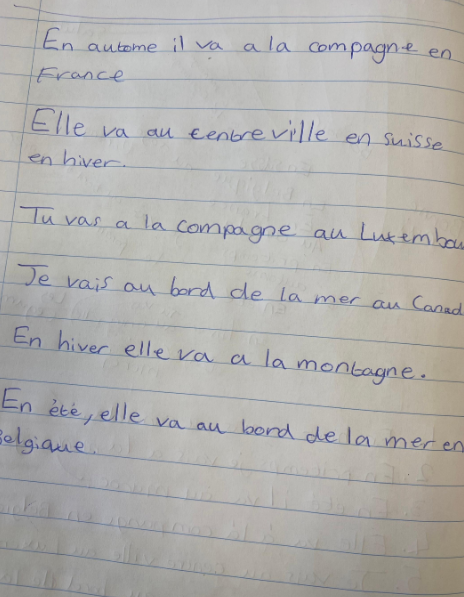 En automne il va a la compagne en
France
Elle va au centre ville en suisse
en hiver.
Tu vas a la compagne au Luxembou
Je vais au bord de la mer au Canad
En hiver elle va a la montagne.
En étè, elle va au bord de la mer en
Belgique.